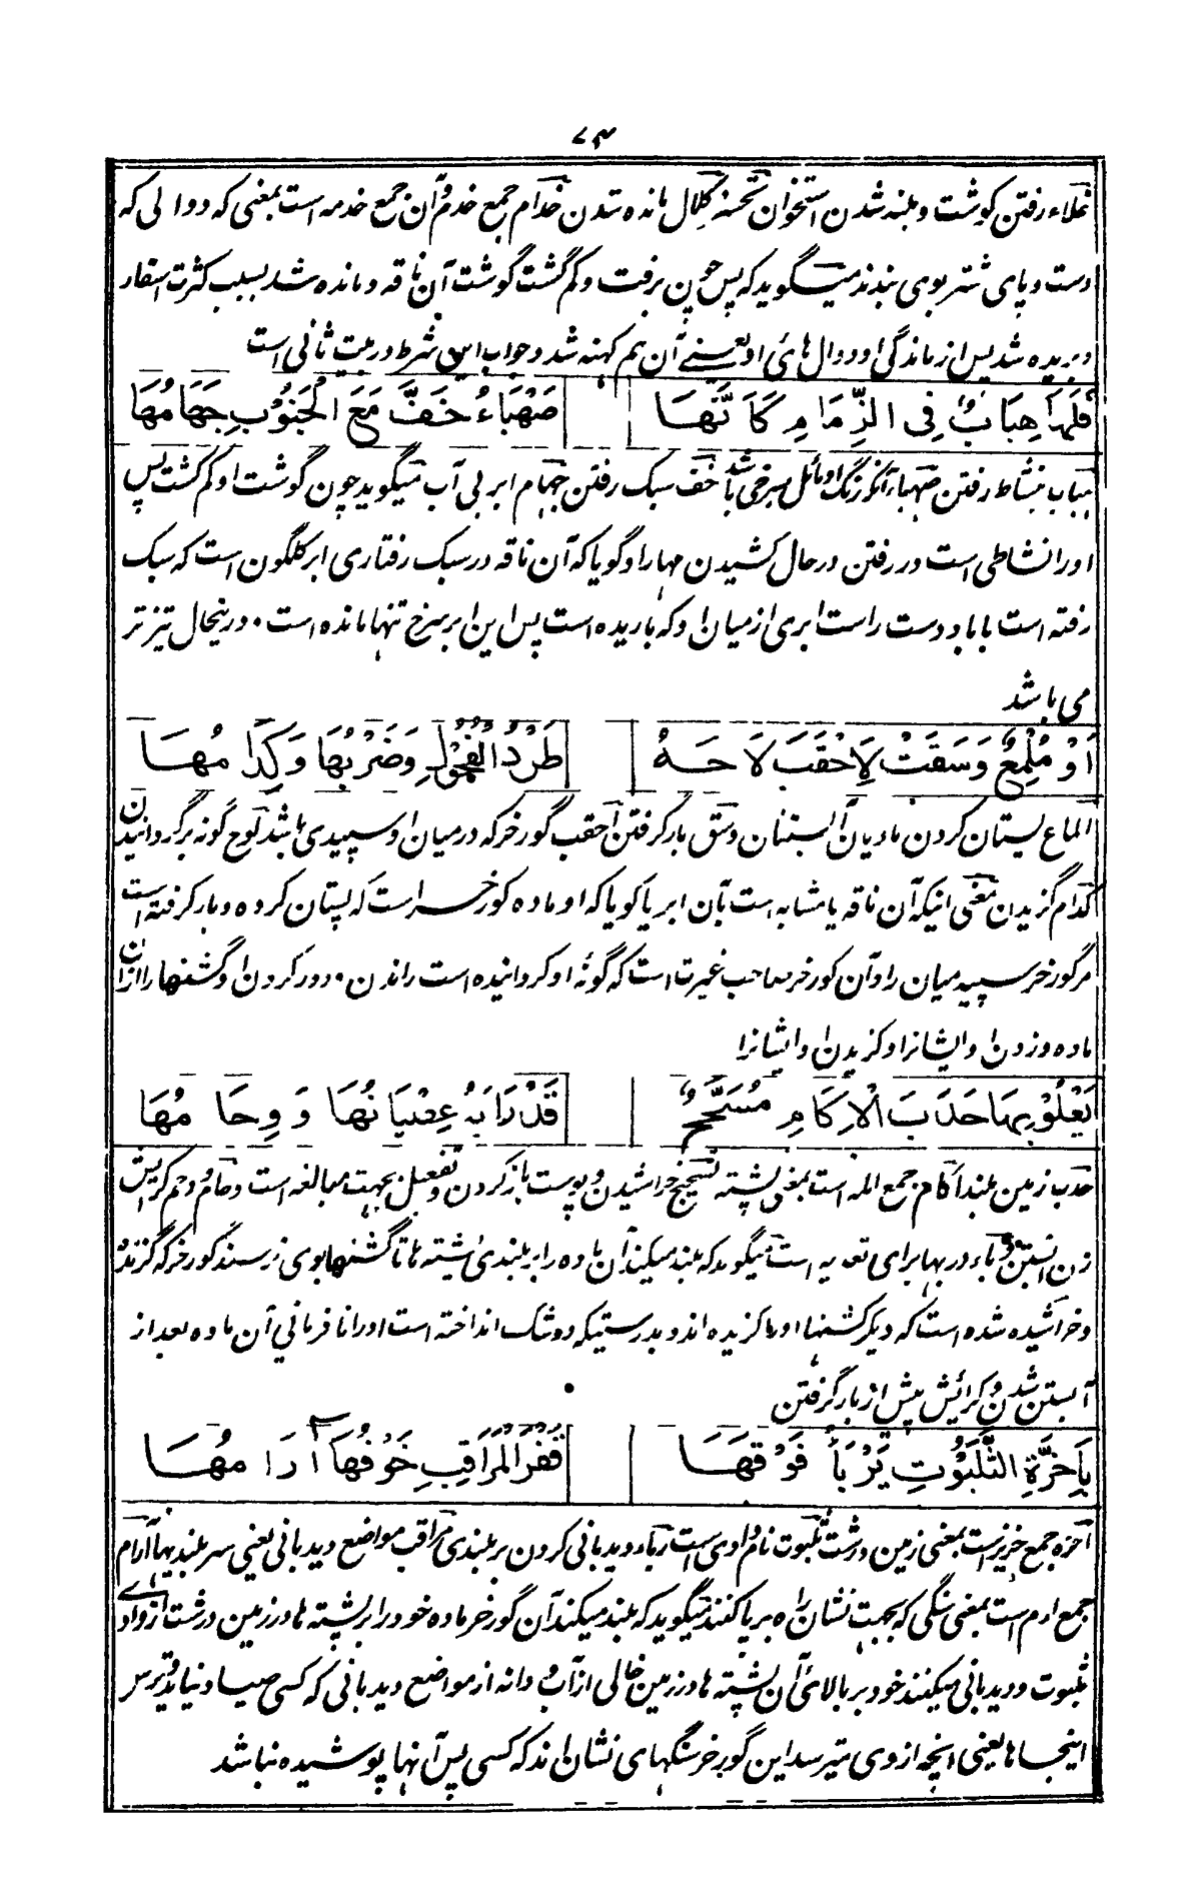 ۷۴
غلاء رفتن گوشت و بلند شدن استخوان تحسر کلال مانده شدن خدام جمع خدم و آن جمع خدمه است بمعنی که دوالی که
دست و پای شتر بوی بندند میگوید که پس چون برفت و کم گشت گوشت آن ناقه و مانده شد بسبب کثرت اسفار
و بریده شد پس از ماندگی او دوال های او یعنے آن هم کهنه شد و جواب این شرط در بیت ثانی است
فَلَهَا هِبَابٌ فِی الزِّمَامِ كَاَنَّهَا صَهْبَاءُ خَفَّ مَعَ الْجَنُوْبِ جَهَامُهَا
هباب نشاط رفتن صهباء آنکه رنگ او مائل بسرخی باشد خف سبک رفتن جهام ابر بی آب میگوید چون گوشت او کم گشت پس
او را نشاطی است در رفتن در حال کشیدن مهار او گویا که آن ناقه در سبک رفتاری ابر گلگون است که سبک
رفته است با باد دست راست ابری از میان او که باریده است پس این ابر سرخ تنها مانده است۰ درینحال تیزتر
می باشد
اَوْ مُلْمِعٌ وَسَقَتْ لِاَحْقَبَ لَاحَهُ طَرْدُ الْفُحُوْلِ وَضَرْبُهَا وَكِدَامُهَا
الماع پستان کردن مادیان آبستنان وسق بار گرفتن احقب گورخر که در میان او سپیدی باشد لوح گونه برگردانیدن
کدام گزیدن معنی اینکه آن ناقه یا مشابه است بآن ابر یا گویا که او ماده گورخر است که پستان کرده و بار گرفته است
مر گورخر سپید میان را و آن گورخر صاحب غیرت است که گونهٔ او گردانیده است راندن۰ دور کردن او گشنها را ازان
ماده و زدن او ایشانرا و گزیدن او ایشانرا
يَعْلُوْ بِهَا حَدَبَ الْاِكَامِ مُسَحَّجٌ قَدْ رَابَهُ عِصْيَانُهَا وَ وِحَامُهَا
حدب زمین بلند اکام جمع اکمه است بمعنی پشته تسحیج خراشیدن و پوست باز کردن و تفعیل بجهت مبالغه است وحام و وحم گرایش
زن آبستن و باء در بها برای تعدیه است میگوید که بلند میکند آن ماده را بر بلندی پشته ها تا گشنها بوی نرسند گورخر که گزنده
و خراشیده شده است که دیگر گشنها او را گزیده اند و بدرستیکه در شک انداخته است او را نافرمانی آن ماده بعد از
آبستن شدن و گرائش پیش از بار گرفتن
بِاَحِزَّةِ الثَّلَبُوْتِ يَرْبَأُ فَوْقَهَا قَفْرَ الْمَرَاقِبِ خَوْفُهَا آرَامُهَا
احزه جمع حزیز است بمعنی زمین درشت ثلبوت نام وادی است رباء دیدبانی کردن بر بلندی مراقب مواضع دیدبانی یعنی سر بلندیها آرام
جمع ارم است بمعنی سنگی که بجهت نشان راه بر پا کنند میگوید که بلند میکند آن گورخر ماده خود را بر پشته ها در زمین درشت از وادی
ثلبوت و دیدبانی میکند خود بر بالای آن پشته ها در زمین خالی از آب و دانه از مواضع دیدبانی که کسی صیاد نیاید و ترس
اینجا ها یعنی انچه از وی میترسد این گورخر سنگهای نشان اند که کسی پس آنها پوشیده نباشد